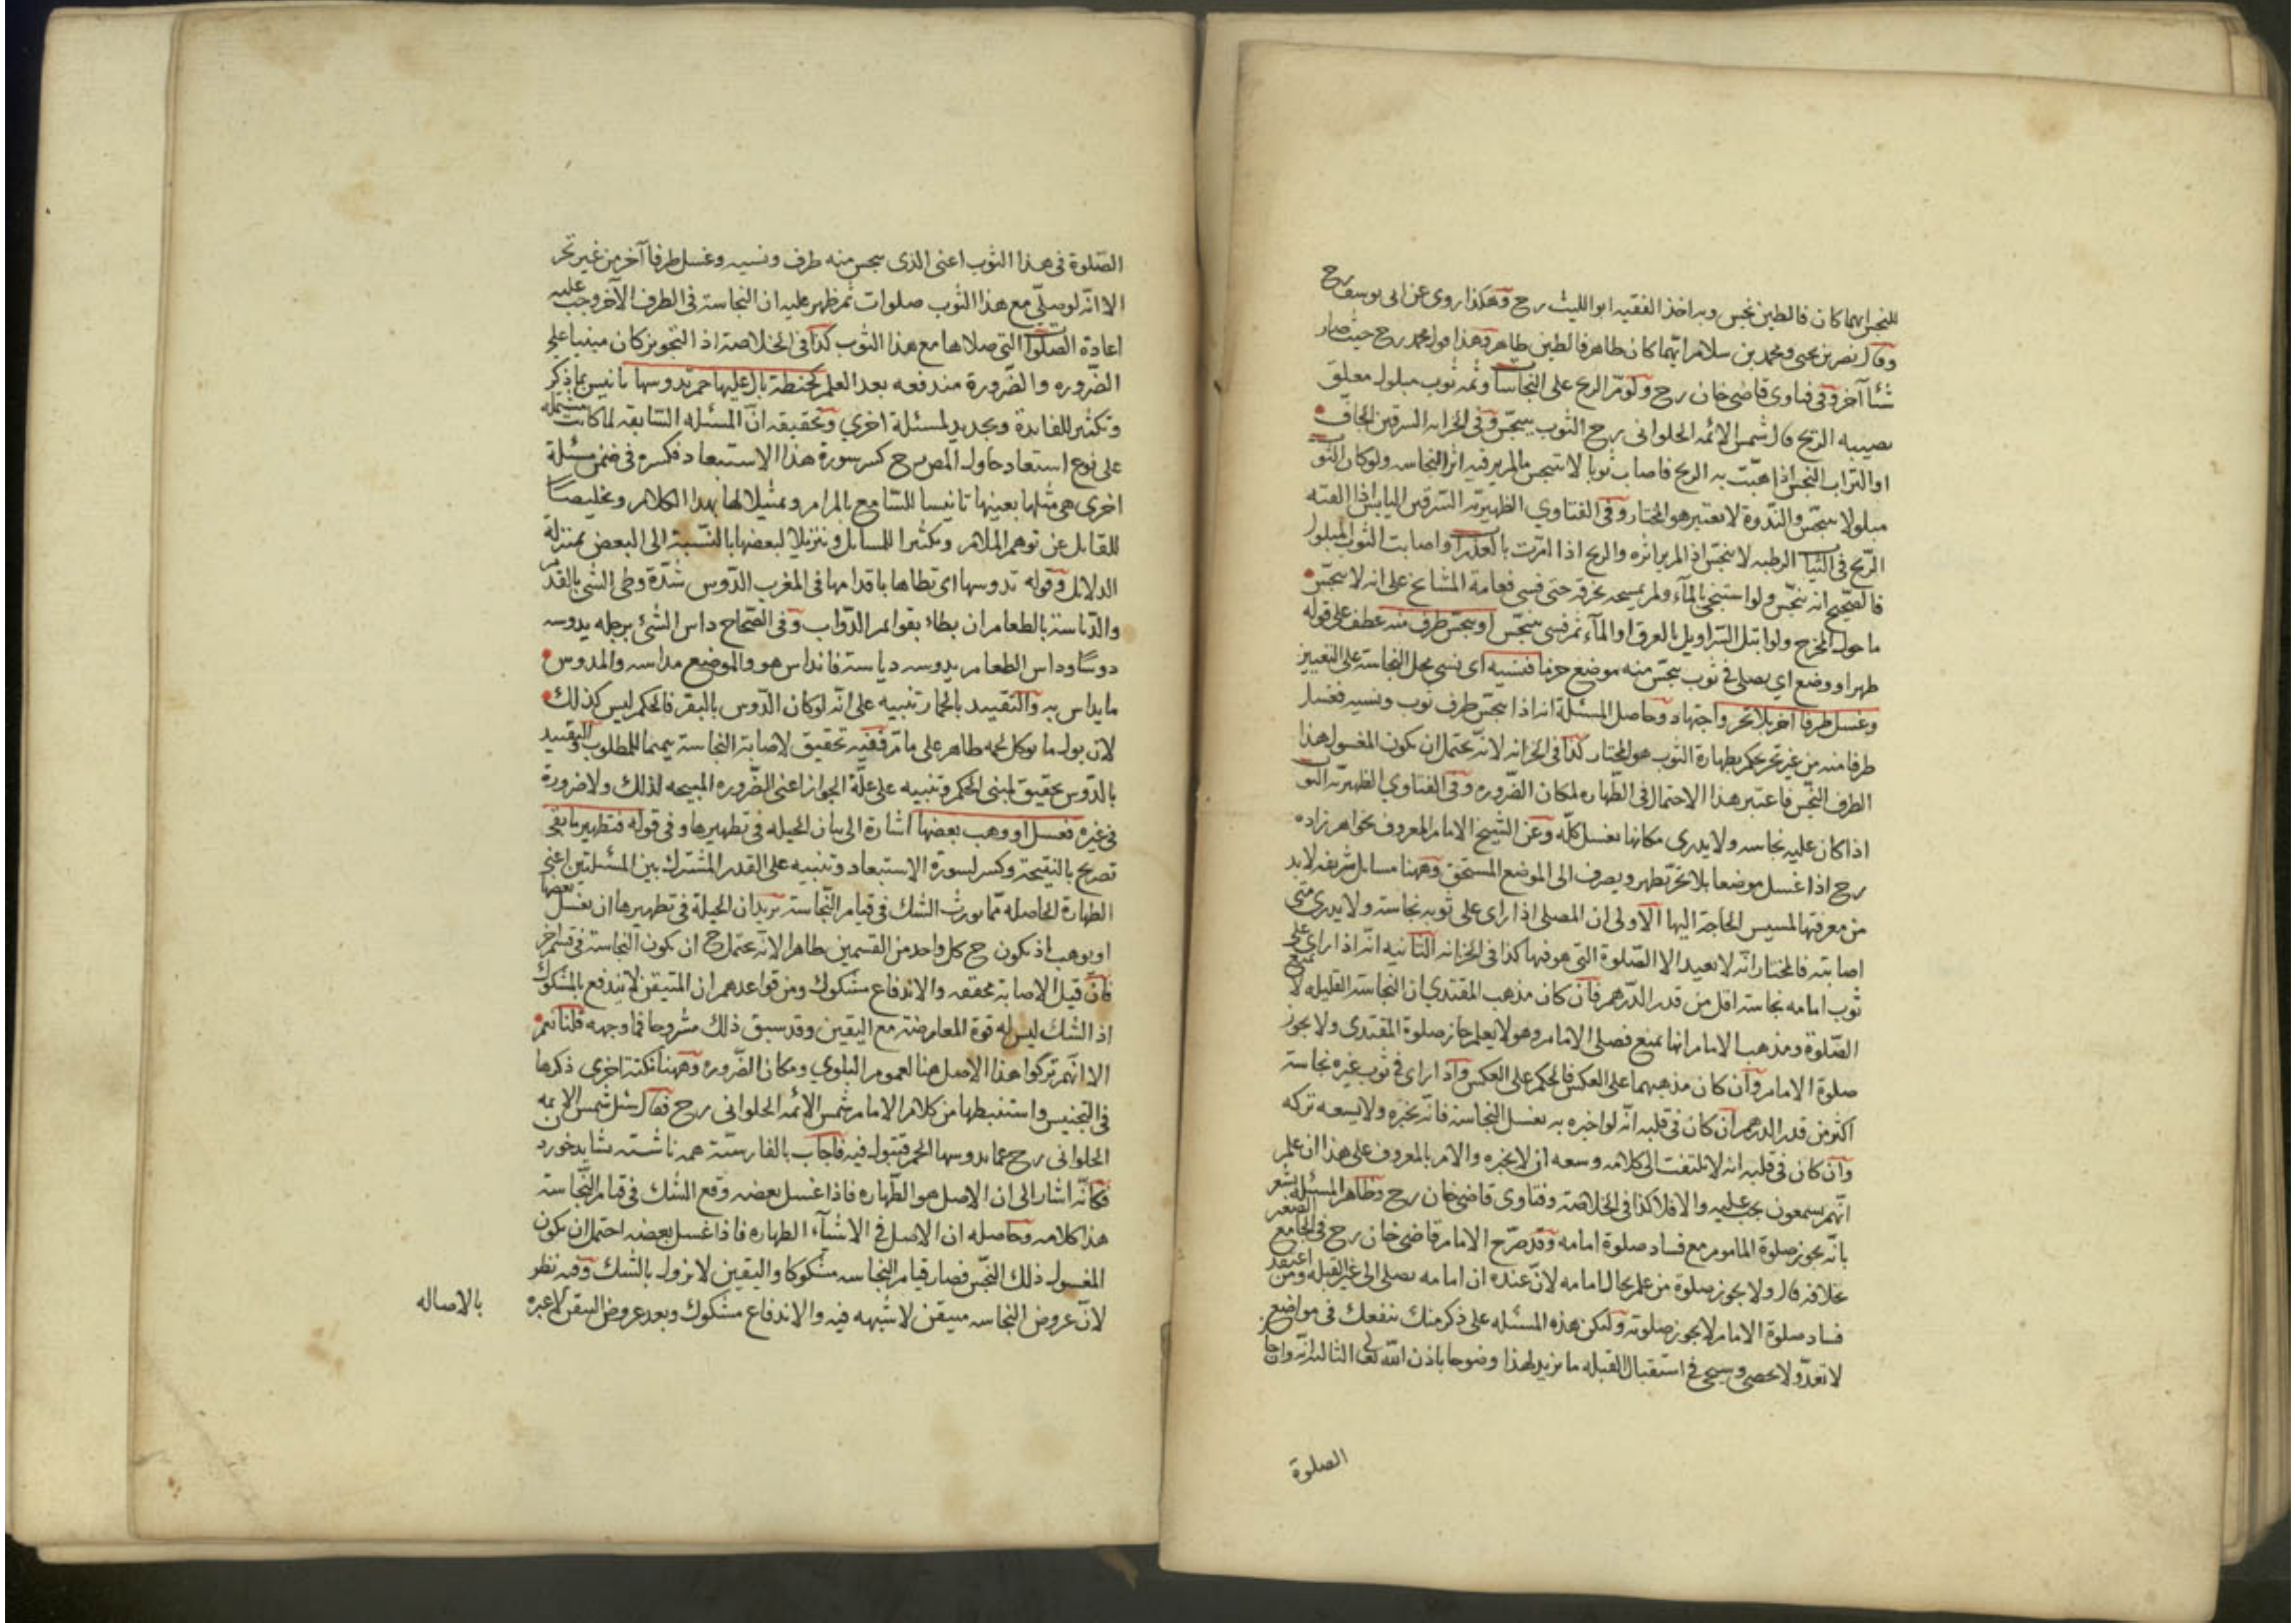 للنجس ايهما كان فالطين نجس وبه اخذ الفقيه ابو الليث رح وهكذا روى عن ابى يوسف رح
وقال نصر بن يحيى ومحمد بن سلام ايهما كان طاهر فالطين طاهر وهذا قول محمد رح حيث صار
شئا آخر وفى فتاوى قاضى خان رح ولو مر الريح على النجاسا وثمه ثوب مبلول معلق
يصيبه الريح قال شمس الائمه الحلوانى رح الثوب يتنجس وفى الخزانه السرقين الجاف
او التراب النجس اذا هبت به الريح فاصاب ثوبا لا يتنجس مالم ير فيه اثر النجاسه ولو كان الثوب
مبلولا يتنجس والندوة لا تعتبر هو المختار وفى الفتاوي الظهيريه السرقين اليابس اذا القته
الريح فى الثياب الرطبه لا يتنجس اذ الم ير اثره والريح اذا مرت بالعذرا واصابت الثوب المبلول
فالصحيح انه يتنجس ولو استنجى بالمآء ولم يمسحه بخرقة حتى فسى فعامة المشايخ على انه لا يتنجس
ما حول المخرج ولو ابتل السراويل بالعرق او المآء ثم فسى يتنجس او يتنجس طرف منه عطف على قوله
طهر او وضع اي يصلى فى ثوب تنجس منه موضع فنسيه اى نسى محل النجاسة على التعيين
وغسل طرفا آخر بلا تحر واجتهاد وحاصل المسئلة انه اذا تنجس طرف ثوب ونسيه فغسل
طرفا منه من غير تحر يحكم بطهارة الثوب هو المختار كذا فى الخزانه لانه يحتمل ان يكون المغسول هذا
الطرف النجس فاعتبر هذا الاحتمال فى الطهاره لمكان الضروره وفى الفتاوي الظهيريه الثوب
اذا كان عليه نجاسه ولا يدرى مكانها يغسل كله وعن الشيخ الامام المعروف بخواهر زاده
رح اذا غسل موضعا بلا تحر تطهر ويصرف الى الموضع المستحق وههنا مسايل شريفه لا بد
من معرفتها لمسيس الحاجة اليها الاولى ان المصلى اذا راى على ثوبه نجاسة ولا يدرى متى
اصابته فالمختار انه لا يعيد الا الصلوة التى هو فيها كذا فى الخزانه الثانيه انه اذا راى على
ثوب امامه نجاسة اقل من قدر الدرهم فان كان مذهب المقتدي ان النجاسة القليله لا تمنع
الصلوة ومذهب الامام انها تمنع فصلى الامام وهو لا يعلم جاز صلوة المقتدى ولا يجوز
صلوة الامام وان كان مذهبهما على العكس فالحكم على العكس واذا راى فى ثوب غيره نجاسة
اكثر من قدر الدرهم ان كان فى قلبه انه لو اخبره به يغسل النجاسة فانه يخبره ولا يسعه تركه
وان كان فى قلبه انه لا يلتفت الى كلامه وسعه ان لا يخبره والامر بالمعروف على هذا ان علم
انهم يسمعون يجب عليه والا فلا كذا فى الخلاصة وفتاوى قاضى خان رح وظاهر المسئله يشعر
بانه يجوز صلوة الماموم مع فساد صلوة امامه وقد صرح الامام قاضى خان رح فى الجامع الصغير
بخلافه قال ولا يجوز صلوة من علم بحال امامه لان عنده ان امامه يصلى الى غير القبله ومن اعتقد
فساد صلوة الامام لا يجوز صلوته ولكن هذه المسئله على ذكر منك تنفعك فى مواضع
لا تعد ولا تحصى وسيجى فى استقبال القبله ما يزيد لهذا وضوحا باذن الله تعالى الثالثه انه وان جاز
الصلوة
الصلوة فى هذا الثوب اعنى الذى تنجس منه طرف ونسيه وغسل طرفا آخر من غير تحر
الا انه لو صلى مع هذا الثوب صلوات ثم ظهر عليه ان النجاسة فى الطرف الآخر وجب عليه
اعادة الصلوات التى صلاها مع هذا الثوب كذا فى الخلاصة اذ التجويز كان مبنيا على
الضروره والضرورة مندفعه بعد العلم كحنطة بال عليها حمر تدوسها تانيس بما ذكر
وتكثير للفايدة وتجديد لمسئلة اخري وتحقيقه ان المسئله السابقه لما كانت مشتمله
على نوع استعاد حاول المص رح كسر سورة هذا الاستبعاد فكسره فى ضمن مسئلة
اخرى هى مثلها بعينها تانيسا للسامع بالمرام وتمثيلا لها بهذا الكلام وتخليصا
للقايل عن توهم الملام وتكثيرا للمسايل وتنزيلا لبعضها بالنسبة الى البعض بمنزلة
الدلايل وقوله تدوسها اى تطاها باقدامها فى المغرب الدوس شدة وطى الشى بالقدم
والدياسة بالطعام ان يطاء بقوايم الدواب وفى الصحاح داس الشئ برجله يدوسه
دوسا وداس الطعام يدوسه دياسة فانداس هو والموضع مداسه والمدوس
ما يداس به والتقييد بالحمار تنبيه على انه لو كان الدوس بالبقر فالحكم ليس كذلك
لان بول ما يوكل لحمه طاهر على ما مر ففيه تحقيق لاصابة النجاسة تتميما للمطلوب والتقييد
بالدوس تحقيق لمبنى الحكم وتنبيه على علة الجواز اعنى الضروره المبيحه لذلك ولا ضرورة
فى غيره فغسل او وهب بعضها اشارة الى بيان الحيله فى تطهيرها وفى قوله فتطهير ما بقى
تصريح بالنتيجة وكسر لسورة الاستبعاد وتنبيه على القدر المشترك بين المسئلتين اعنى
الطهارة الحاصله مما يورث الشك فى قيام النجاسة يريد ان الحيلة فى تطهيرها ان يغسل بعضها
او يوهب اذ يكون ح كل واحد من القسمين طاهرا لانه يحتمل ح ان يكون النجاسة فى قسم آخر
فان قيل الاصابة محققه والاندفاع مشكوك ومن قواعدهم ان المتيقن لا يندفع بالمشكوك
اذ الشك ليس له قوة المعارضة مع اليقين وقد سبق ذلك مشروحا فما وجهه قلنا نعم
الا انهم تركوا هذا الاصل هنا لعموم البلوي ومكان الضروره وههنا نكتة اخرى ذكرها
فى التجنيس واستنبطها من كلام الامام شمس الائمه الحلوانى رح فقال سئل شمس الائمه
الحلوانى رح عما يدوسها الحمر فتبول فيه فاجاب بالفارسية همه ناشسته نشايد خوردن
فكانه اشار الى ان الاصل هو الطهاره فاذا غسل بعضه وقع الشك فى قيام النجاسة
هذا كلامه وحاصله ان الاصل فى الاشيآء الطهاره فاذا غسل بعضه احتمل ان يكون
المغسول ذلك النجس فصار قيام النجاسه مشكوكا واليقين لا يزول بالشك وفيه نظر
لان عروض النجاسه متيقن لا شبهه فيه والاندفاع مشكوك وبعد عروض اليقين لا عبره
بالاصاله